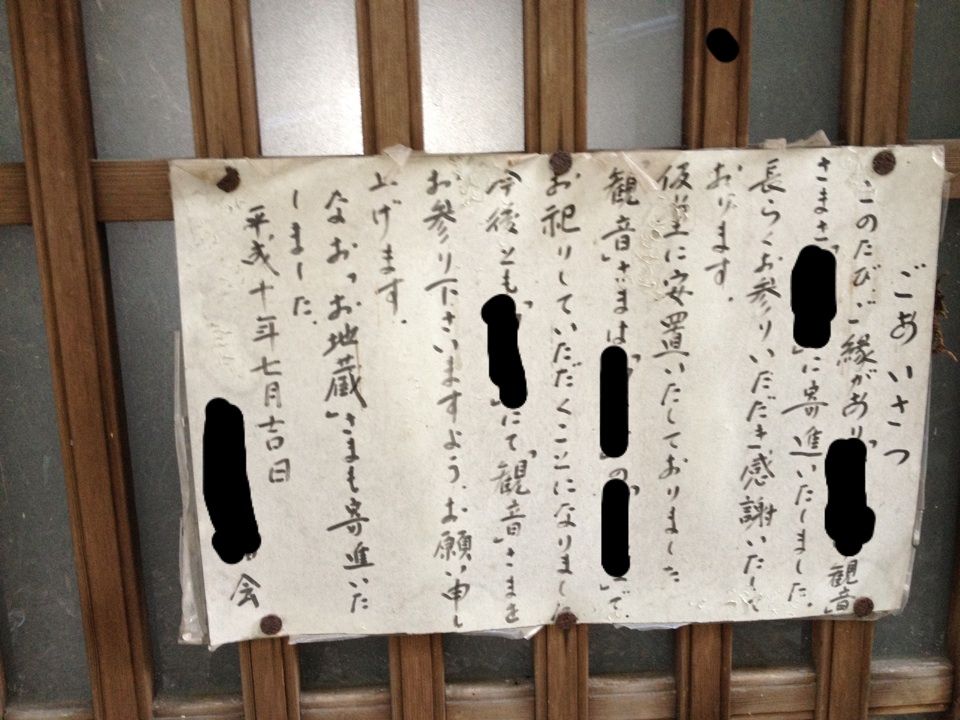 ごあいさつ
このたびご縁があり「観音」
さまを「」に寄進いたしました。
長らくお参りいただき感謝いたして
おります。
仮堂に安置いたしておりました
「観音」さまは「」の「」で
お祀りしていただくことになりました
今後とも「」にて「観音」さまを
お参り下さいますよう、お願い申し
上げます。
なお「お地蔵」さまも寄進いた
しました。
平成十年七月吉日
会